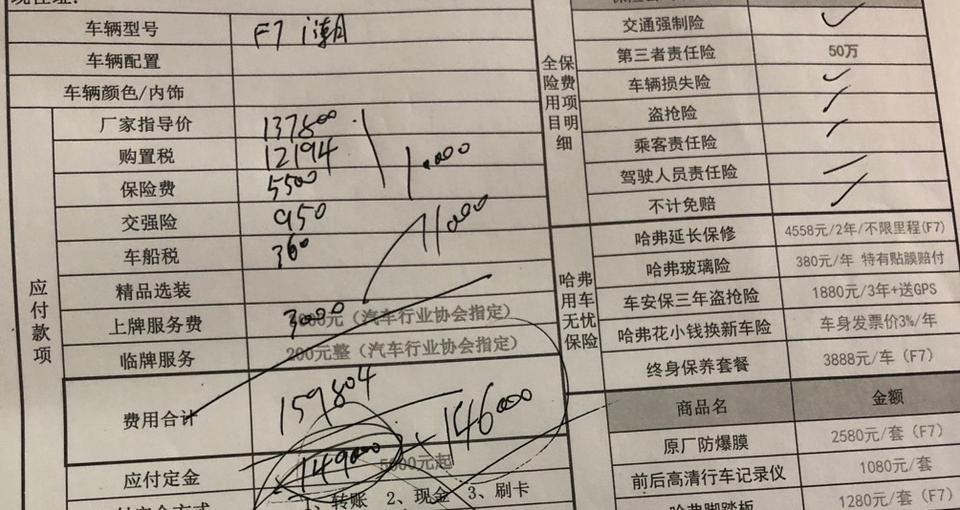 车辆型号 F7 i潮
车辆配置
车辆颜色/内饰
应付款项
厂家指导价 137800
购置税 12194
保险费 5500
交强险 950
车船税 360
10000
11000
精品选装
上牌服务费 3000 元(汽车行业协会指定)
临牌服务 200元整(汽车行业协会指定)
费用合计 159804
146000
应付定金 149000 5000元起
1、转账 2、现金 3、刷卡
全保险费用项目明细
交通强制险 ✓
第三者责任险 50万
车辆损失险 ✓
盗抢险 ✓
乘客责任险 ✓
驾驶人员责任险
不计免赔 ✓
哈弗用车无忧保险
哈弗延长保修 4558元/2年/不限里程(F7)
哈弗玻璃险 380元/年 特有贴膜赔付
车安保三年盗抢险 1880元/3年+送GPS
哈弗花小钱换新车险 车身发票价3%/年
终身保养套餐 3888元/车(F7)
商品名 金额
原厂防爆膜 2580元/套(F7)
前后高清行车记录仪 1080元/套
哈弗脚踏板 1280元/套(F7)